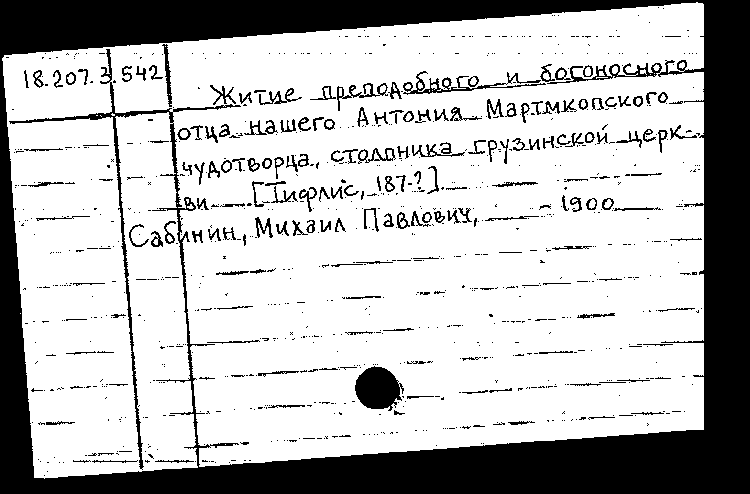 18.207.3.542
Житие преподобного и богоносного
отца нашего Антония Мартмкопского
чудотворца, столпника грузинской церк-
ви [Тифлис, 187-?].
Сабинин, Михаил Павлович, - 1900